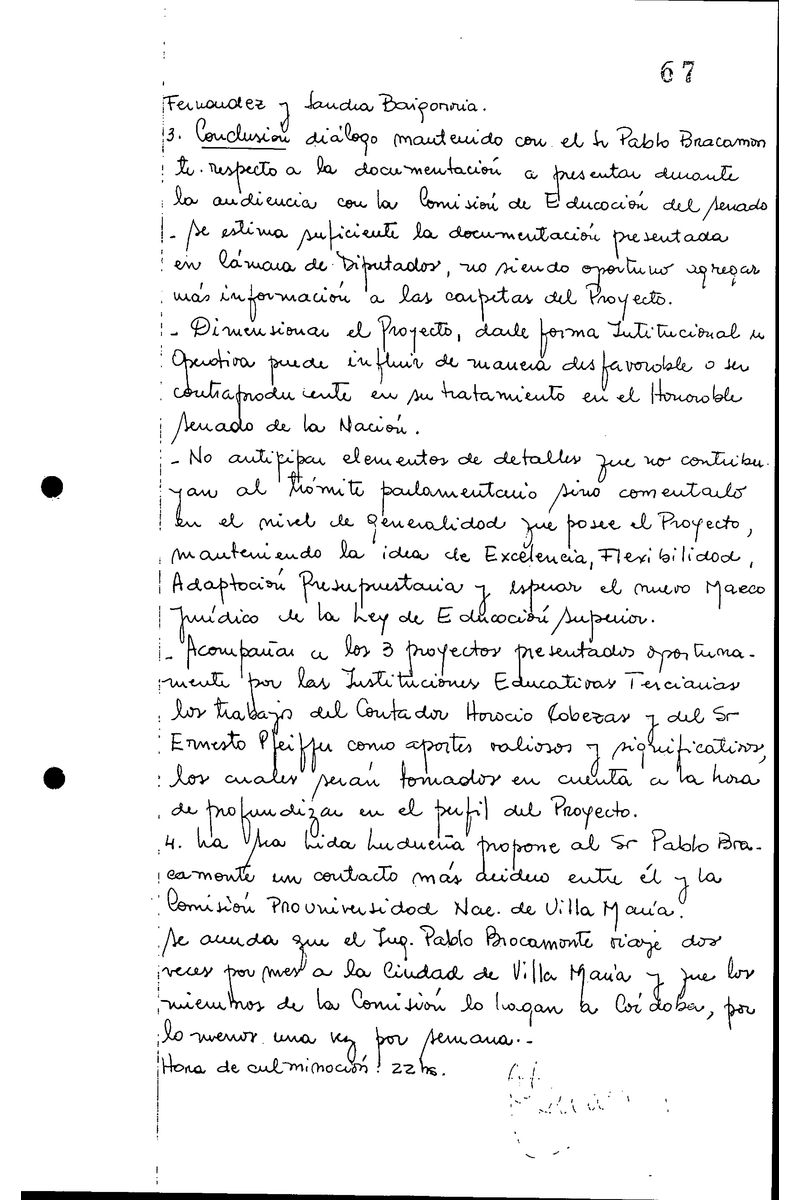 67
Fernandez y Sandra Baigorria.
3. Conclusión diálogo mantenido con el Sr Pablo Bracamon
te. respecto a la documentación a presentar durante
la audiencia con la Comisión de Educación del Senado
- Se estima suficiente la documentación presentada
en Cámara de Diputados, no siendo oportuno agregar
más información a las carpetas del Proyecto.
- Dimensionar el Proyecto, darle forma Intitucional u
Operativa puede influir de manera desfavorable o ser
contraproducente en su tratamiento en el Honorable
Senado de la Nación.
- No anticipar elementos de detalles que no contribu
yan al trámite parlamentario sino comentarlo
en el nivel de generalidad que posee el Proyecto,
manteniendo la idea de Excelencia, Flexibilidad,
Adaptación Presupuestaria y esperar el nuevo Marco
Jurídico de la Ley de Educación Superior.
- Acompañar a los 3 proyectos presentados oportuna-
mente por las Instituciones Educativas Terciarias
los trabajos del Contador Horacio Cabezas y del Sr
Ernesto Pfeiffer como aportes valiosos y significativos,
los cuales serán tomados en cuenta a la hora
de profundizar en el perfil del Proyecto.
4. La Sra Lida Ludueña propone al Sr Pablo Bra-
camonte un contacto más asiduo entre él y la
Comisión Prouniversidad Nac. de Villa María.
Se acuerda que el Ing. Pablo Bracamonte viaje dos
veces por mes a la Ciudad de Villa María y que los
miembros de la Comisión lo hagan a Córdoba, por
lo menos una vez por semana.-
Hora de culminación: 22 hs.